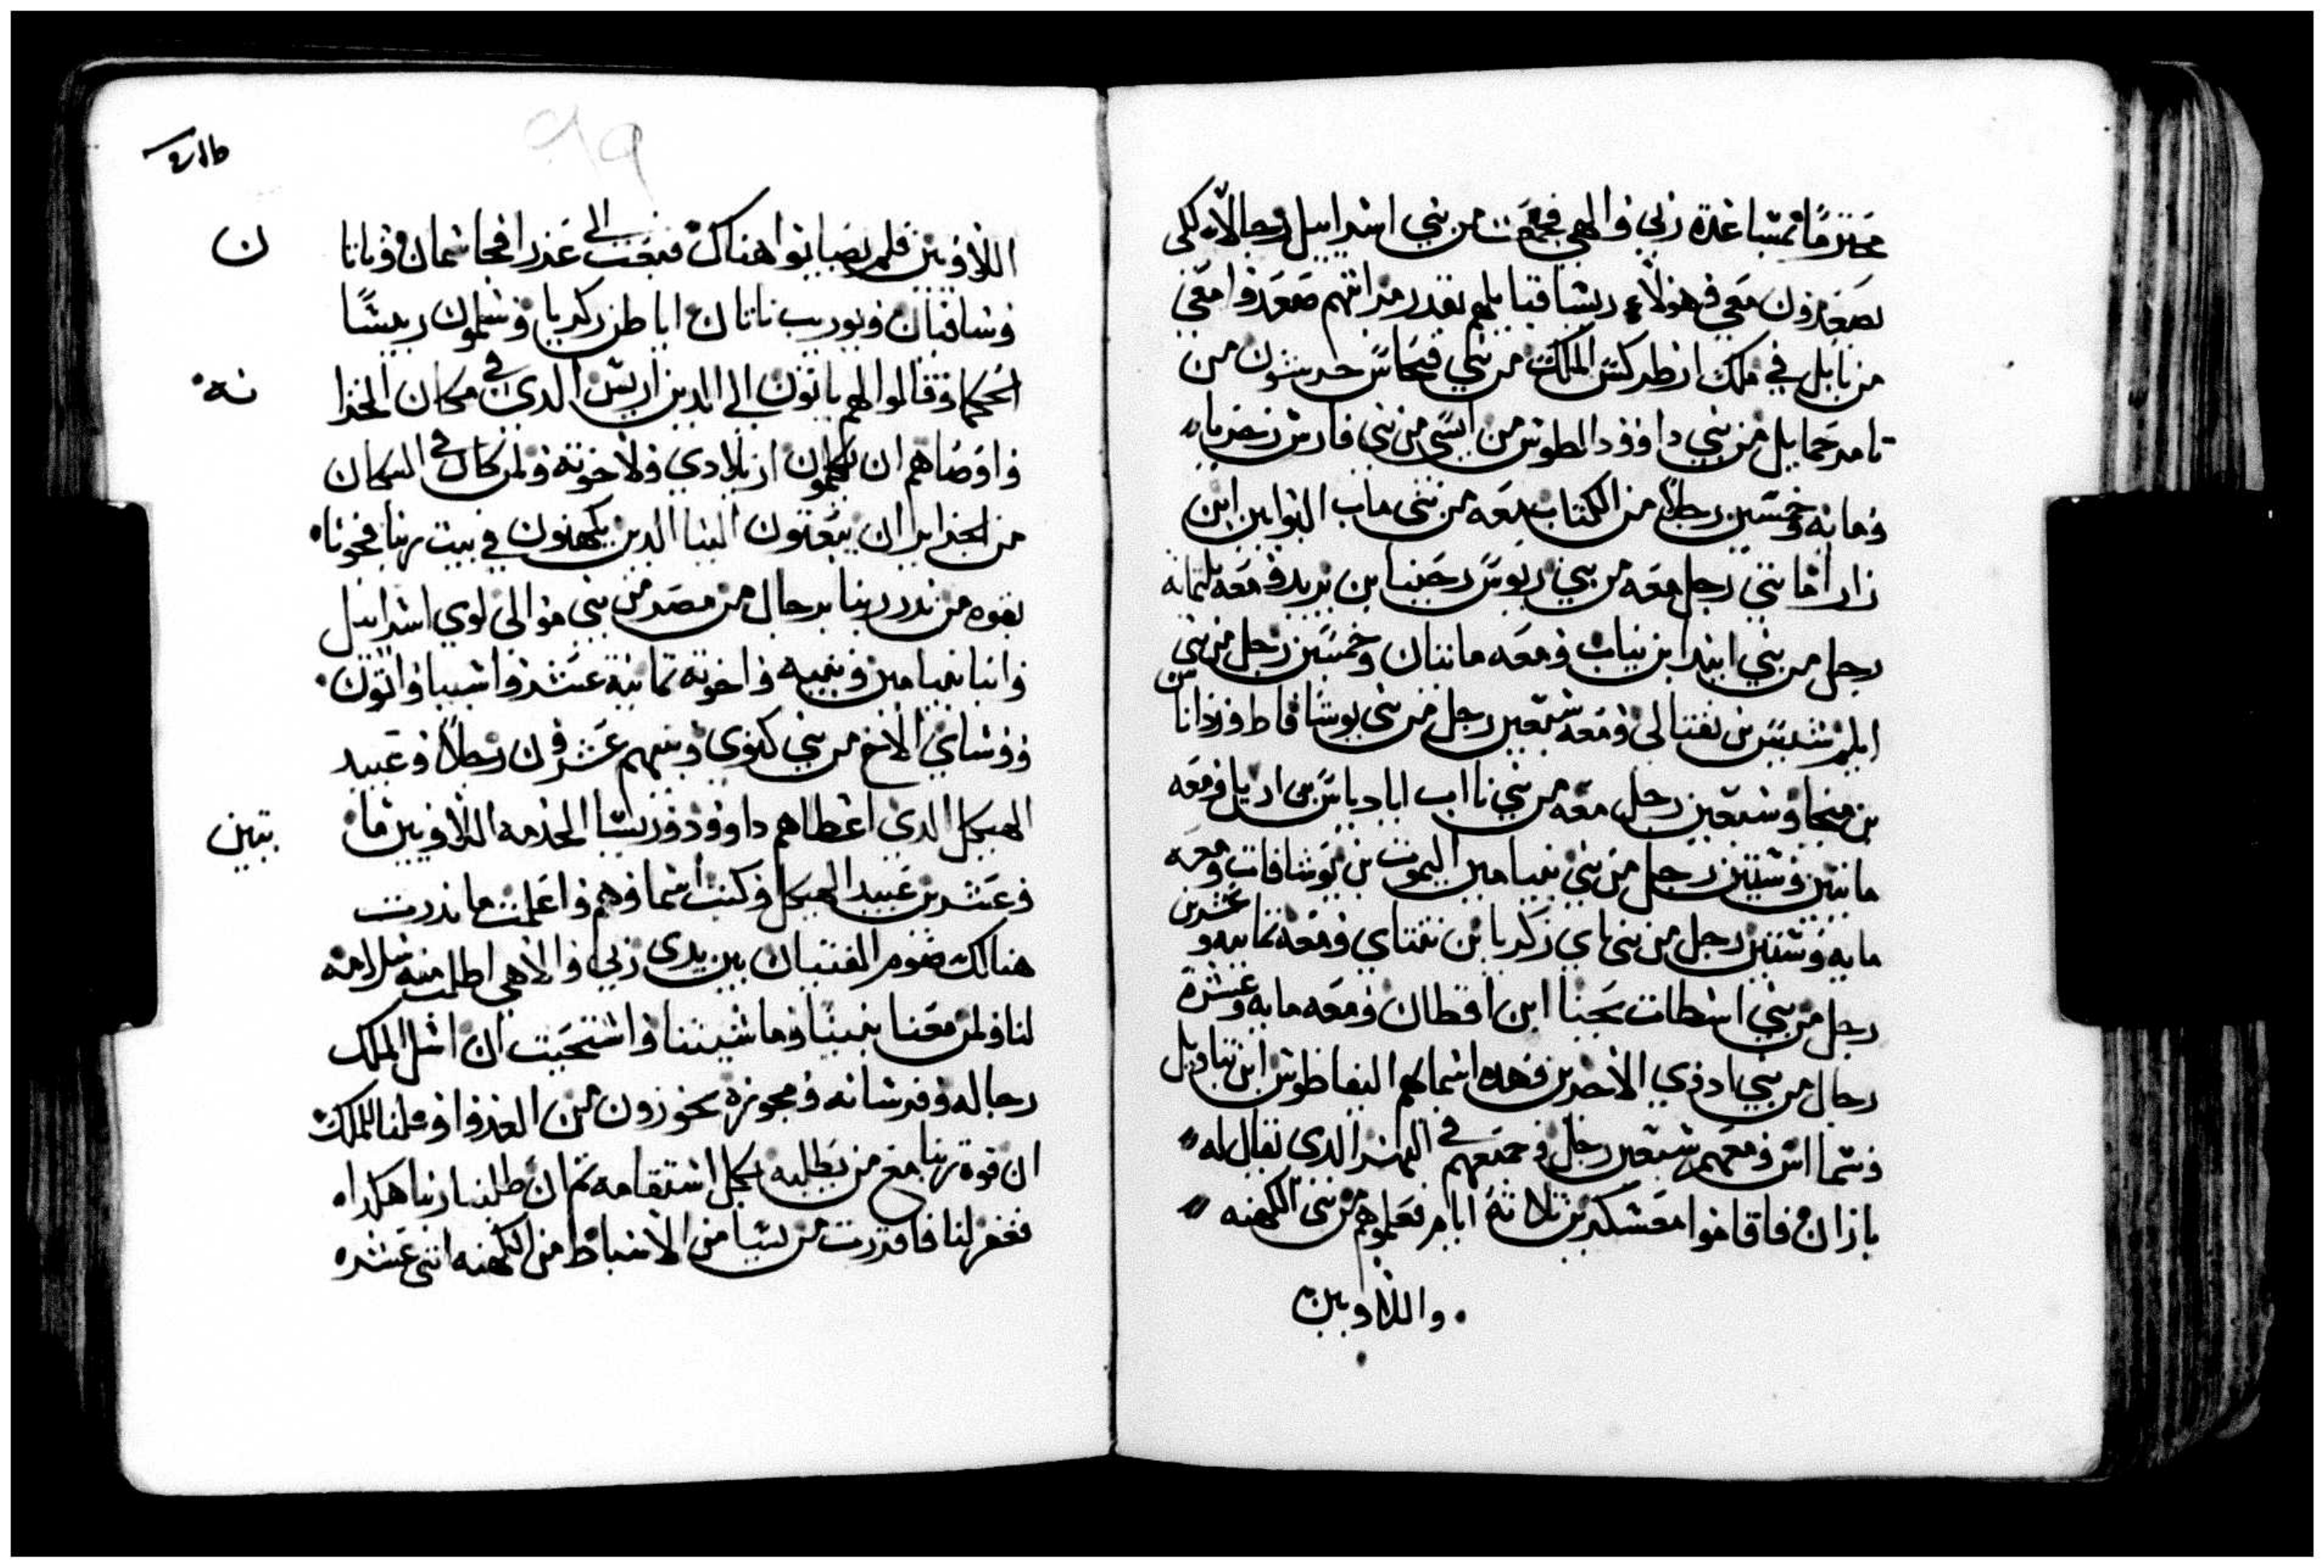 محترما تمشاعدة ربي والهي فجمعت من بني اسراييل رجالا لكي
يصعدون معي وهولاء ريسا قبايلهم بقدر مراتبهم صعدوا معي
من بابل في ملك ارطركسس الملك من بني فيحاس جرسون من
تامر حمايل من بني داوود الطوس من ابسي من بني فارس زخريا
ومايه وخمسين رجلا من الكتاب معه من بني ماب النوابين ابن
زارا مايتي رجل معه من بني ربوس رحنيا بن يريد ومعه ثلتمايه
رجل من بني ايندا بن نيات ومعه مايتان وخمسين رجل من بني
ايلم شيس بن نفتالي ومعه سبعين رجل من بني يوشافاط وزدانان
بن ميخا وسبعين رجل معه من بني نااب ابادياس بن اريل ومعه
مايتين وستين رجل من بني بنيامين اليموت بن يوشافات ومعه
مايه وستين رجل من بني باي زكريا بن نفتاي ومعه تمانيه وعشرين
رجل من بني اسطات يحنا ابن اقطان ومعه مايه وعشرة
رجال من بني ادوي الاخرين وهده اسماهم اليفاطوس ابن نناديل
وشمااس ومعهم سبعين رجل وجمعتهم في النهر الدي يقال له
ياران واقاموا معسكرين تلاتة ايام فعملوهم من بني الكهنه
واللاويين
اللاويين فلم يصابوا هناك فبعث الي عزرا فجا شمان وناتا ن
وسافنان ويوريب ناتان اباطن زكريا وشملون ريشا
الحكما وقالوا لهم ياتون الي الدين اريس الدي في مكان الخزا نه
واوصاهم ان يكلمون ازبلادي ولاخوته ولمن كان في المكان
من الخزاين ان يبعتون الينا الدين يكهنون في بيت ربنا فجوناه
بقوه من ندر ربنا برجال من مصر من بني موالي لوي اسراييل
واتنا بنيامين وبنيه واخوته تمانية عشر واسبيا واتون
ووشاي الاخ من بني كنوي وبنيهم عشرون رجلا وعبيد
الهيكل الدي اعطاهم داوود وريسا لخدمه اللاويين ما يتين
وعشرين عبيد الهيكل وكتب اسماوهم واعملت ما ندرت
هنالك صوم الفتيان بين يدي ربي والاهي اطلب منه سلامه
لنا ولمن معنا بنينا وماشيتنا واستحيت ان اسل الملك
رجاله وفرسانه ومجوزة يحوزون من العدوا وقلنا للملك
ان قوة ربنا مع من يطلبه بكل استقامه تم ان طلبنا ربنا هكداه
فغفر لنا فافتررت من ريسا من الاسباط من الكهنه اتني عشره